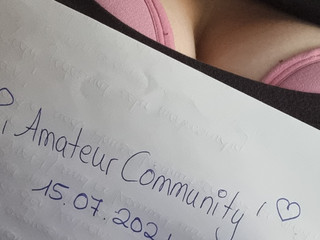 Amateur Community ! ♡
15.07.202